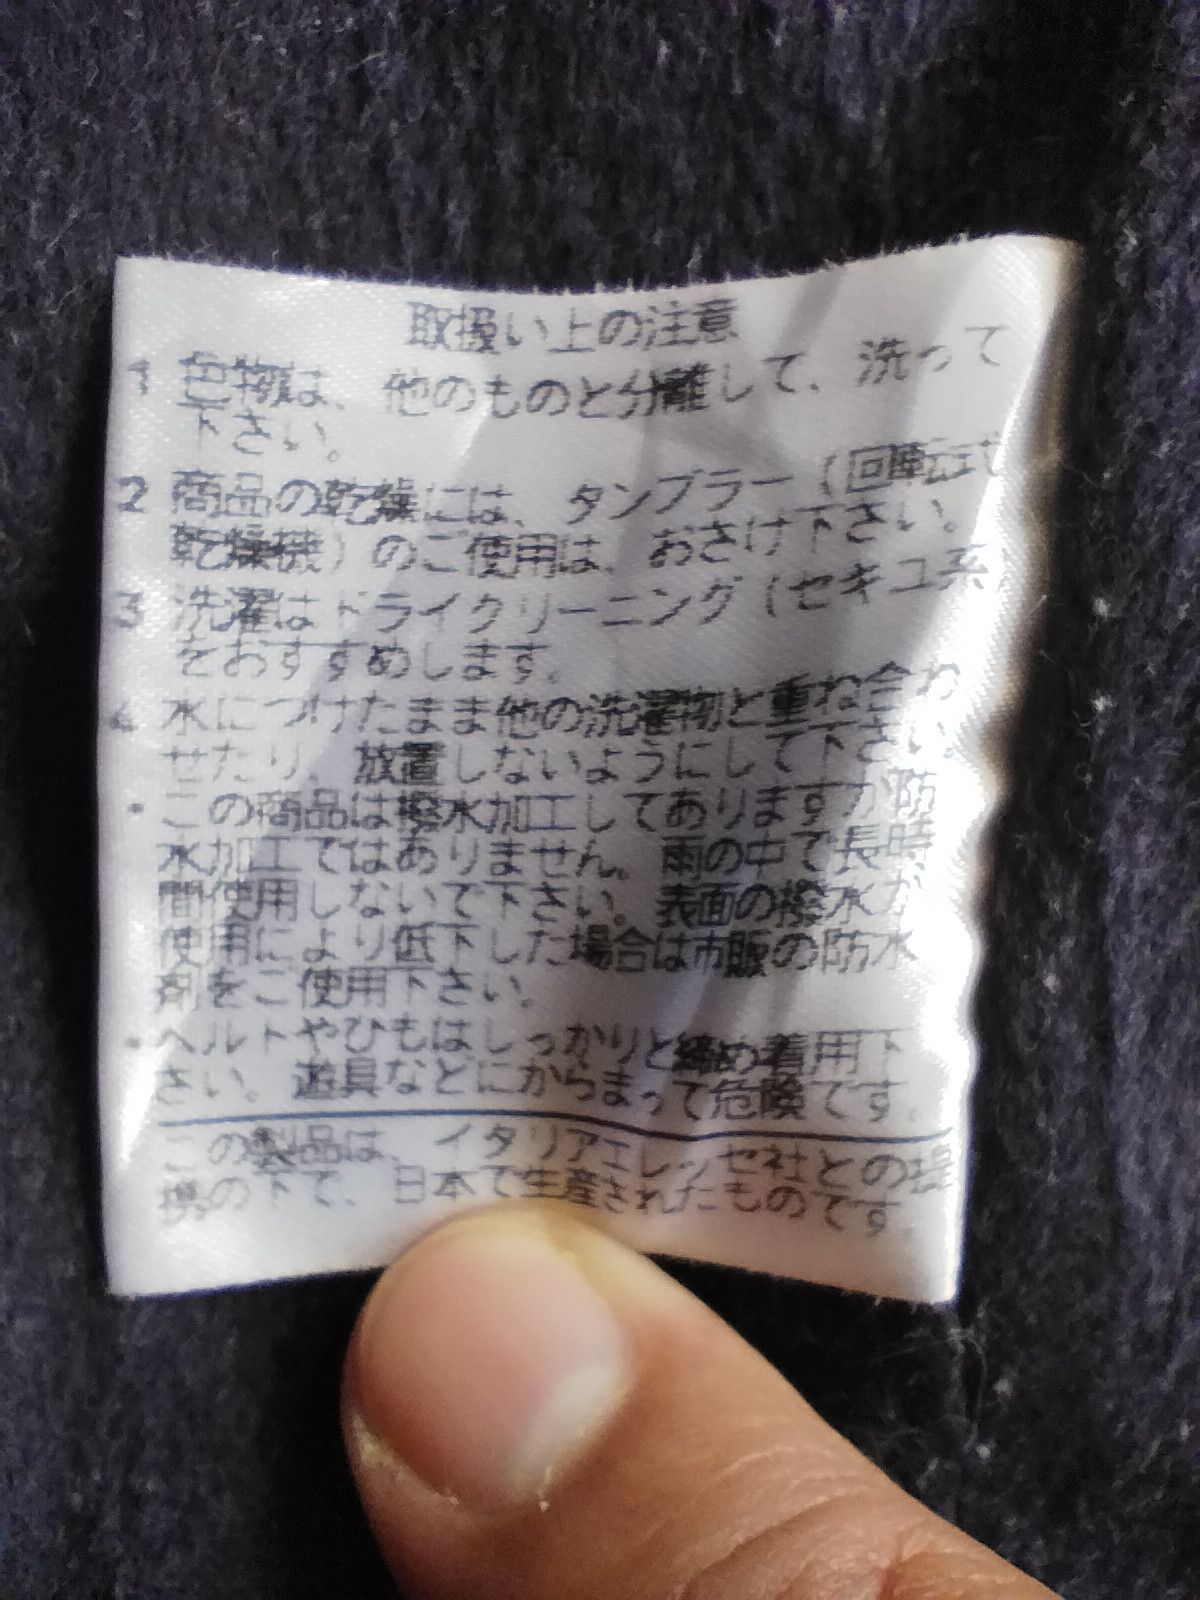 取扱い上の注意
1 色物は、他のものと分離して、洗って
下さい。
2 商品の乾燥には、タンブラー(回転式
乾燥機)のご使用は、おさけ下さい。
3 洗濯はドライクリーニング(セキユ系)
をおすすめします。
4 水につけたまま他の洗濯物と重ね合わ
せたり、放置しないようにして下さい。
・この商品は撥水加工してありますが防
水加工ではありません。雨の中で長時
間使用しないで下さい。表面の撥水が
使用により低下した場合は市販の防水
剤をご使用下さい。
・ベルトやひもはしっかりと締め着用下
さい。遊具などにからまって危険です。
この製品は、イタリアエレッセ社との提
携の下で、日本で生産されたものです。